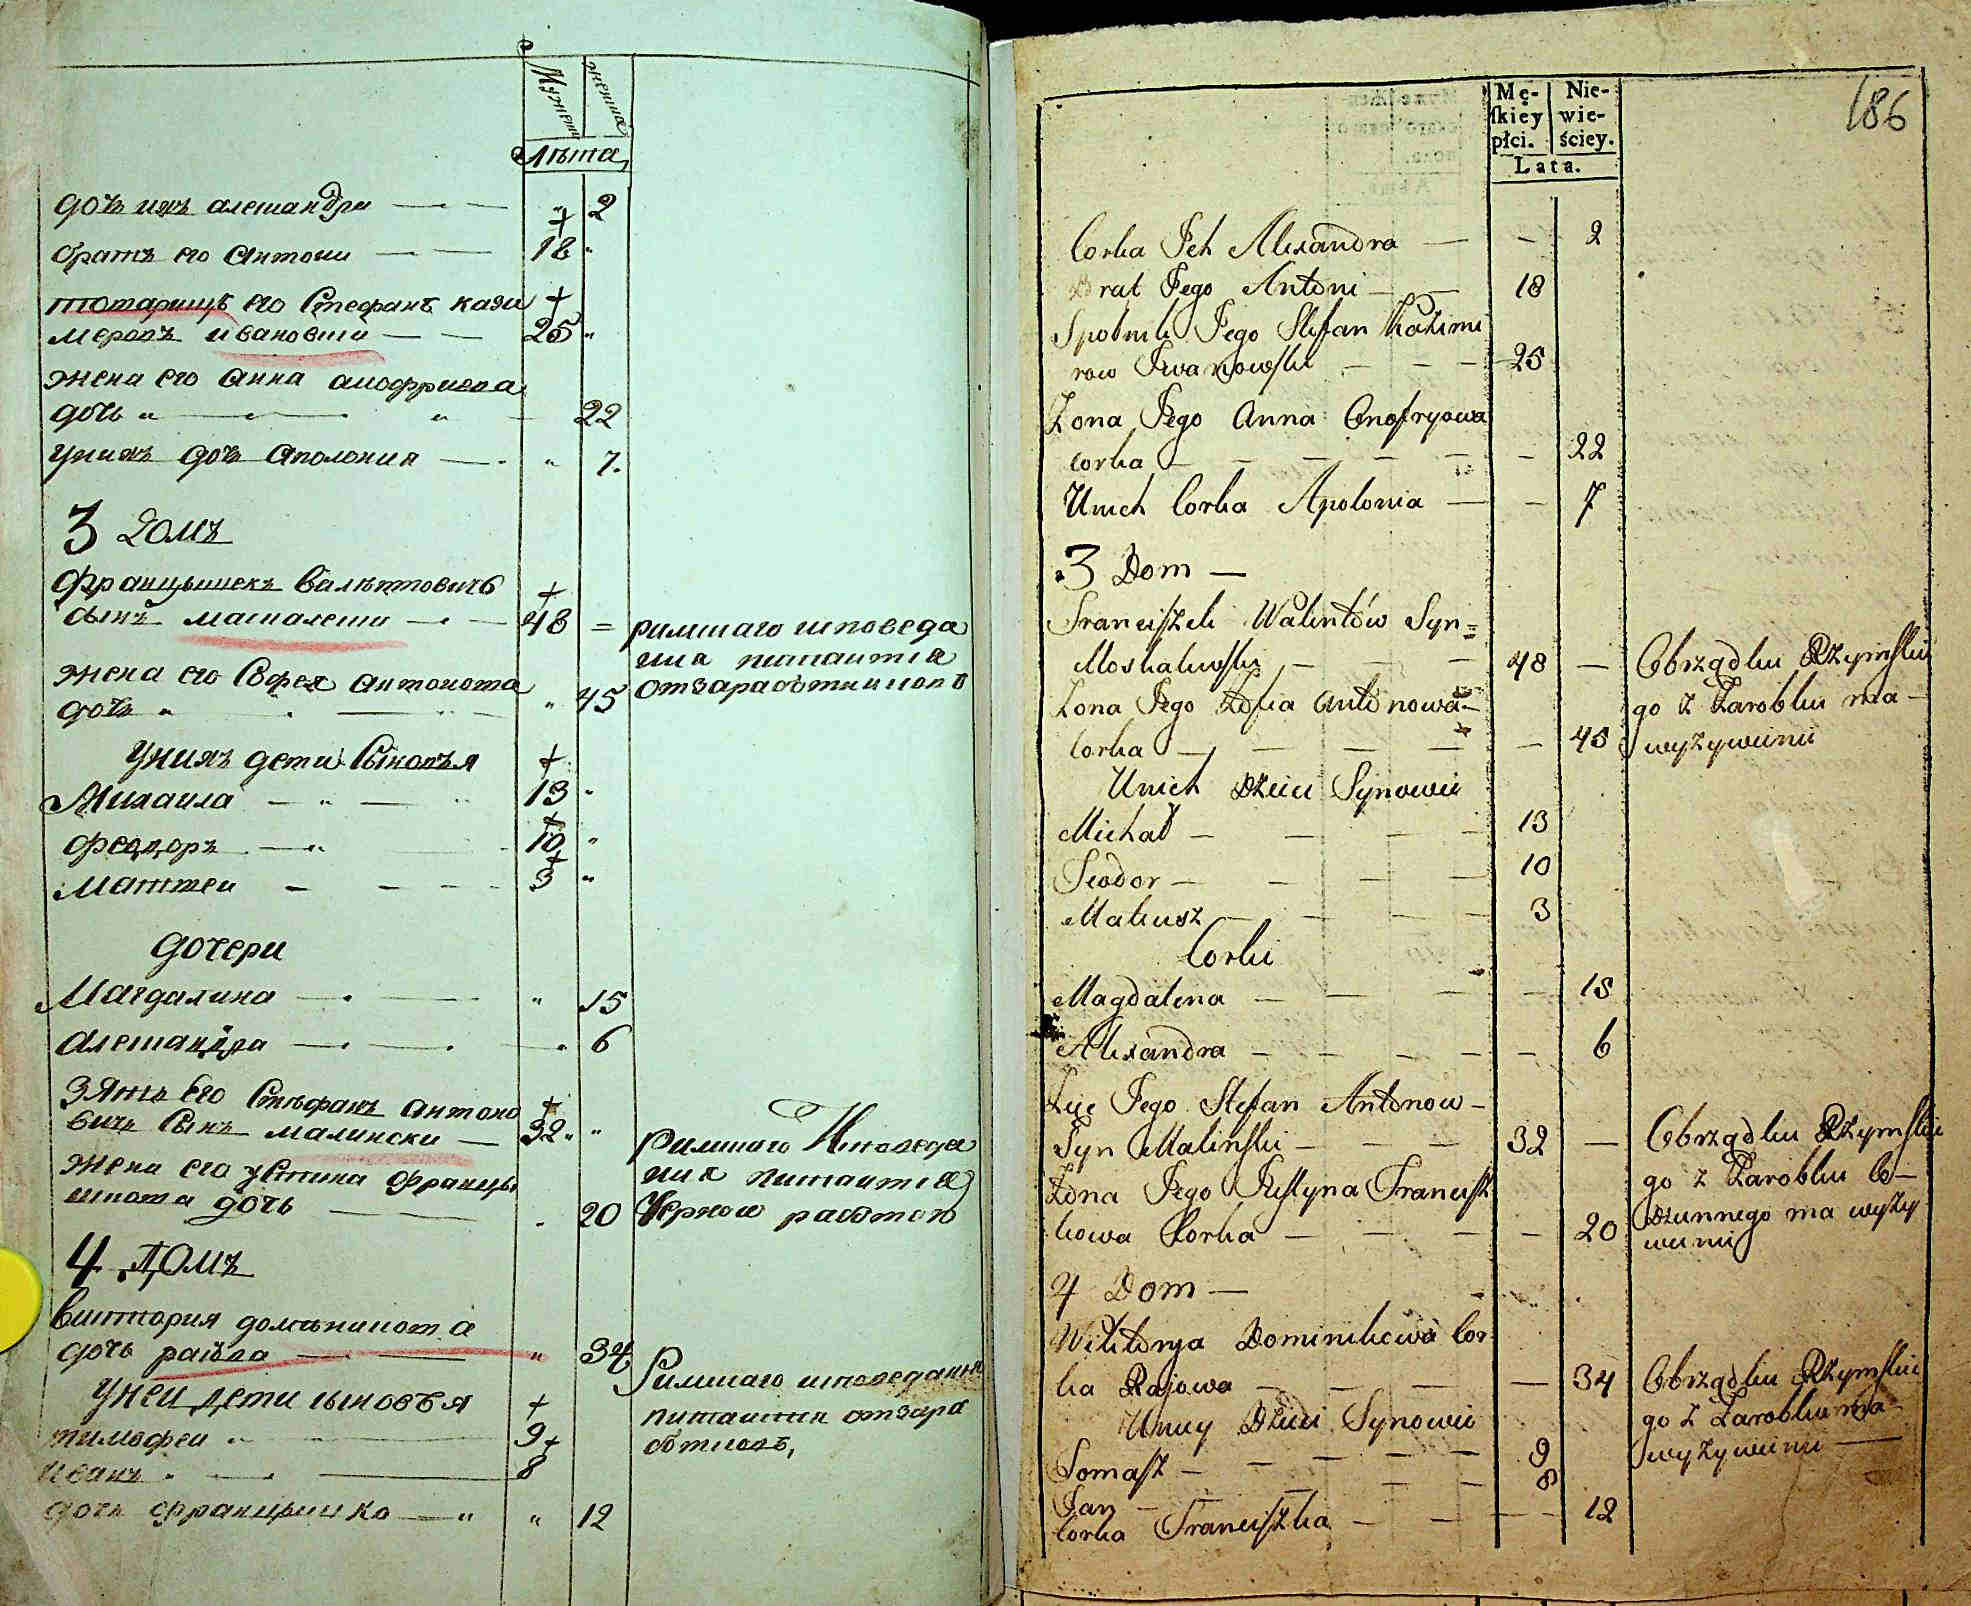 Мужеска
женска
Лѣта
дочь ихъ алешандра 2
братъ его Антони 18
тотарищъ его Стефанъ кази
меровъ ивановши 25
жена его Анна анофриева
дочь 22
унихъ дочь Аполония 7.
3 домъ
Францышекъ валѣнтовичъ
сынъ масналеши 48 =
римшаго исповеда
ния питаитця
отзаработшиновъ
жена его Софея антонота
дочь 45
унихъ дети Сыновъя
Михаила 13
Феодоръ 10
Маттеи 3
дочери
Магдалина 15
алешандра 6
Зять Его Стефанъ антоно
вичъ Сынъ малински 32
римшаго Исповеда
ния питаитця
Чорною работою
жена его устина Францы
шнота дочь 20
4 Домъ
виктория доменинота
дочь раіова 34
Римшаго исповедания
питаитця отзара
ботновъ,
унеи дети сыновъя
тимофеи 9
иванъ 8
дочь францышко 12
Mę-
ſkiey
płci.
Nie-
wie-
ściey.
Lata.
186
Corka Jch Alexandra — 2
Brat Jego Antoni — 18
Spolnik Jego Stefan Kazimi
row Jwanowſki — 25
Żona Jego Anna Onofryowa
corka — 22
Unich Corka Apolonia — 7
3 Dom —
Franciſzek Walintów Syn=
Moskalewſki — 48 —
Obrządku Rzymſkie
go z Zarobku ma—
wyżywienie
Żona Jego Zofia Antonowa—
Corka — 45
Unich Dzieci Synowie
Michał — 13
Teodor — 10
Mateusz — 3
Corki
Magdalena — 15
Alexandra — 6
Zięć Jego Stefan Antonow—
Syn Malinſki — 32 —
Obrządku Rzymſkie
go z Zarobku Co—
Dziennego ma wyży
wienie
Żona Jego Juſtyna Franciſz
kowa Corka — 20
4 Dom —
Wiktorya Dominikowa Cor
ka Rajowa — 34
Obrządku Rzymſkie
go z Zarobku ma—
wyżywienie —
Uniey Dzieci Synowie
Tomaſz — 9
Jan — 8
Corka Franciſzka — 12